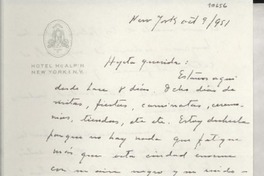 90656
New York oct 9/951
HOTEL McALPIN
NEW YORK 1, N.Y.
Hijita querida:
Estamos aquí
desde hace 8 días. 8 días de
visitas, fiestas, caminatas,
tiendas, etc etc. Estoy deshecha
porque no hay nada que fatigue
más que esta ciudad enorme
con su aire negro y su